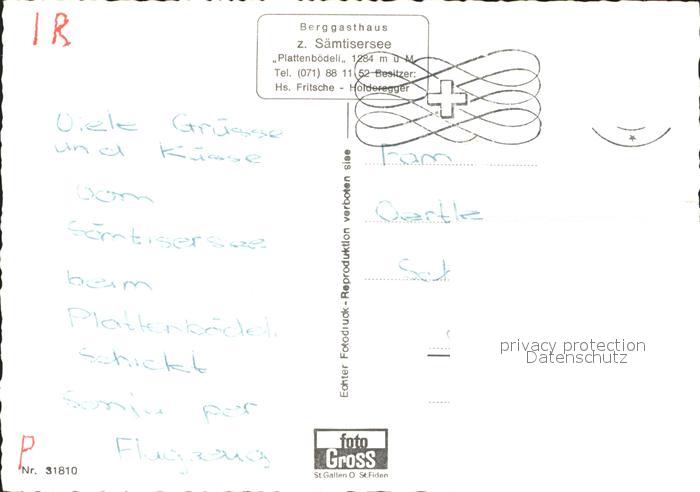 1R
Berggasthaus
z. Sämtisersee
„Plattenbödeli„ 1284 m ü M
Tel. (071) 88 11 52 Besitzer:
Hs. Fritsche - Holderegger
Viele Grüsse
und Küsse
vom
Sämtisersee
beim
Plattenbödeli
schickt
Sonja per
Flugzeug
Echter Fotodruck - Reproduktion verboten sise
Fam
Oertle
privacy protection
Datenschutz
P
Nr. 31810
foto
Gross
St.Gallen O St.Fiden